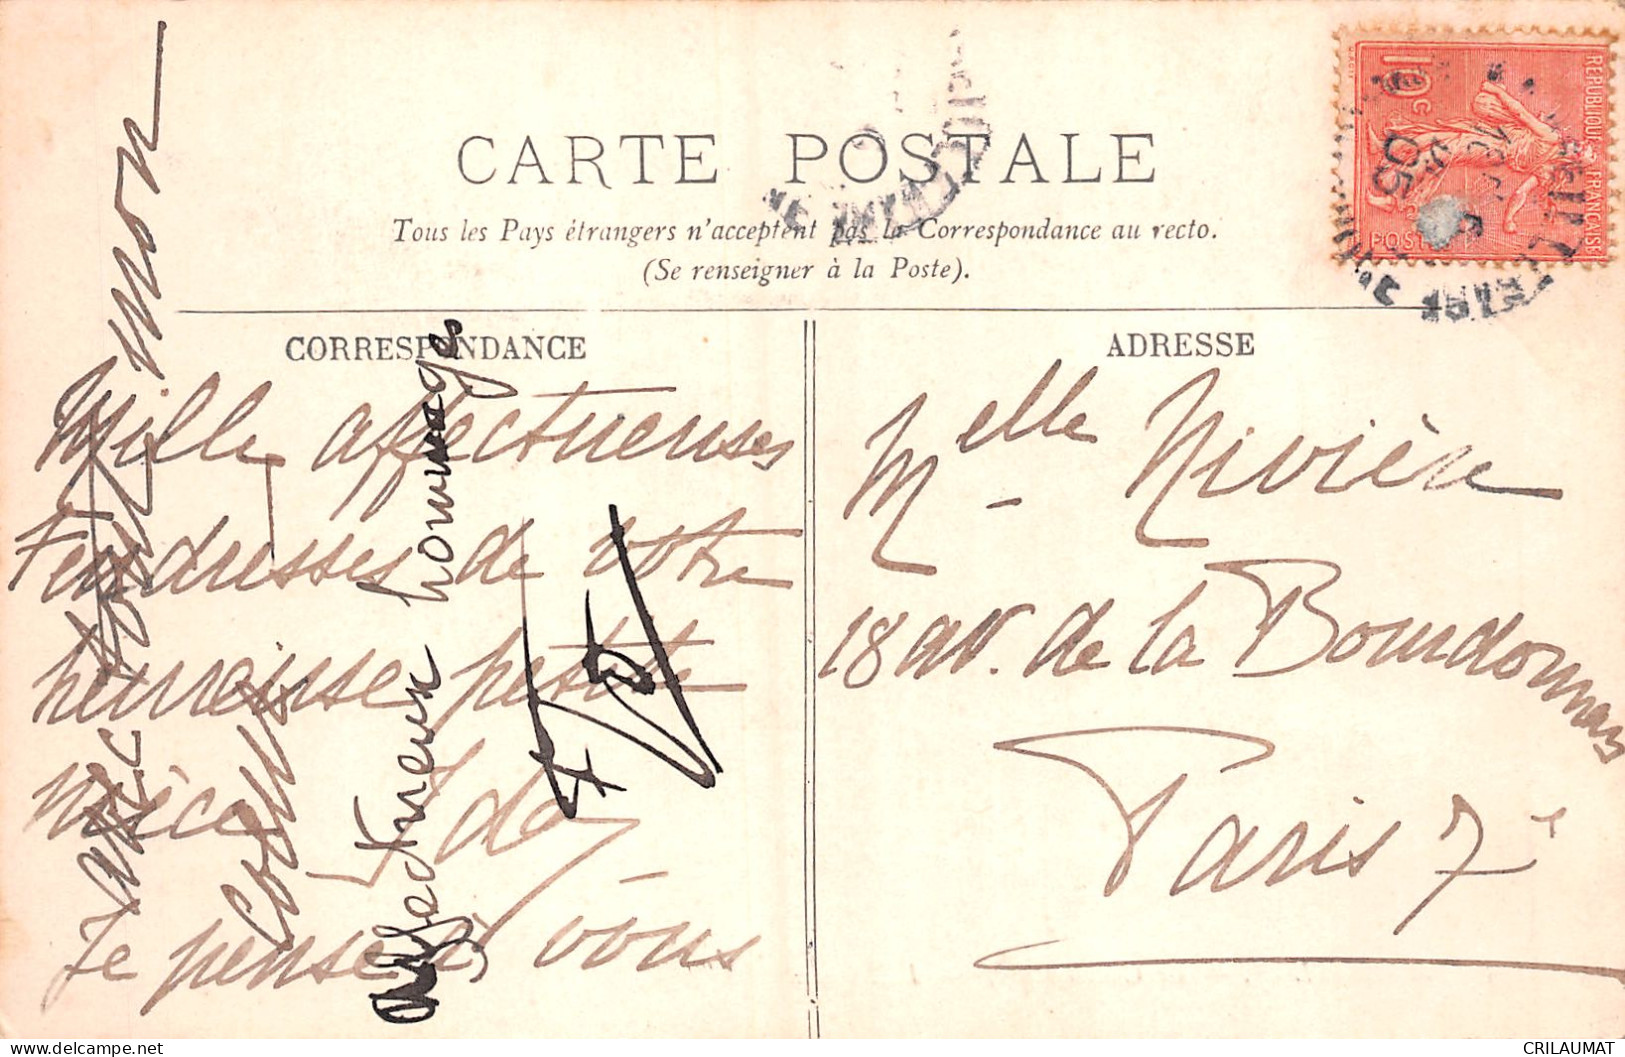 CARTE POSTALE
Tous les Pays étrangers n'acceptent pas la Correspondance au recto.
(Se renseigner à la Poste).
REPUBLIQUE FRANÇAISE
10c
POSTES
05
CORRESPONDANCE
Mille affectueuses
tendresses de votre
heureuse petite
nièce
Je pense à vous
avec tout mon
coeur
affectueux hommages
ADRESSE
Melle Rivière
18 av. de la Bourdonnais
Paris 7e
delcampe.net
CRILAUMAT